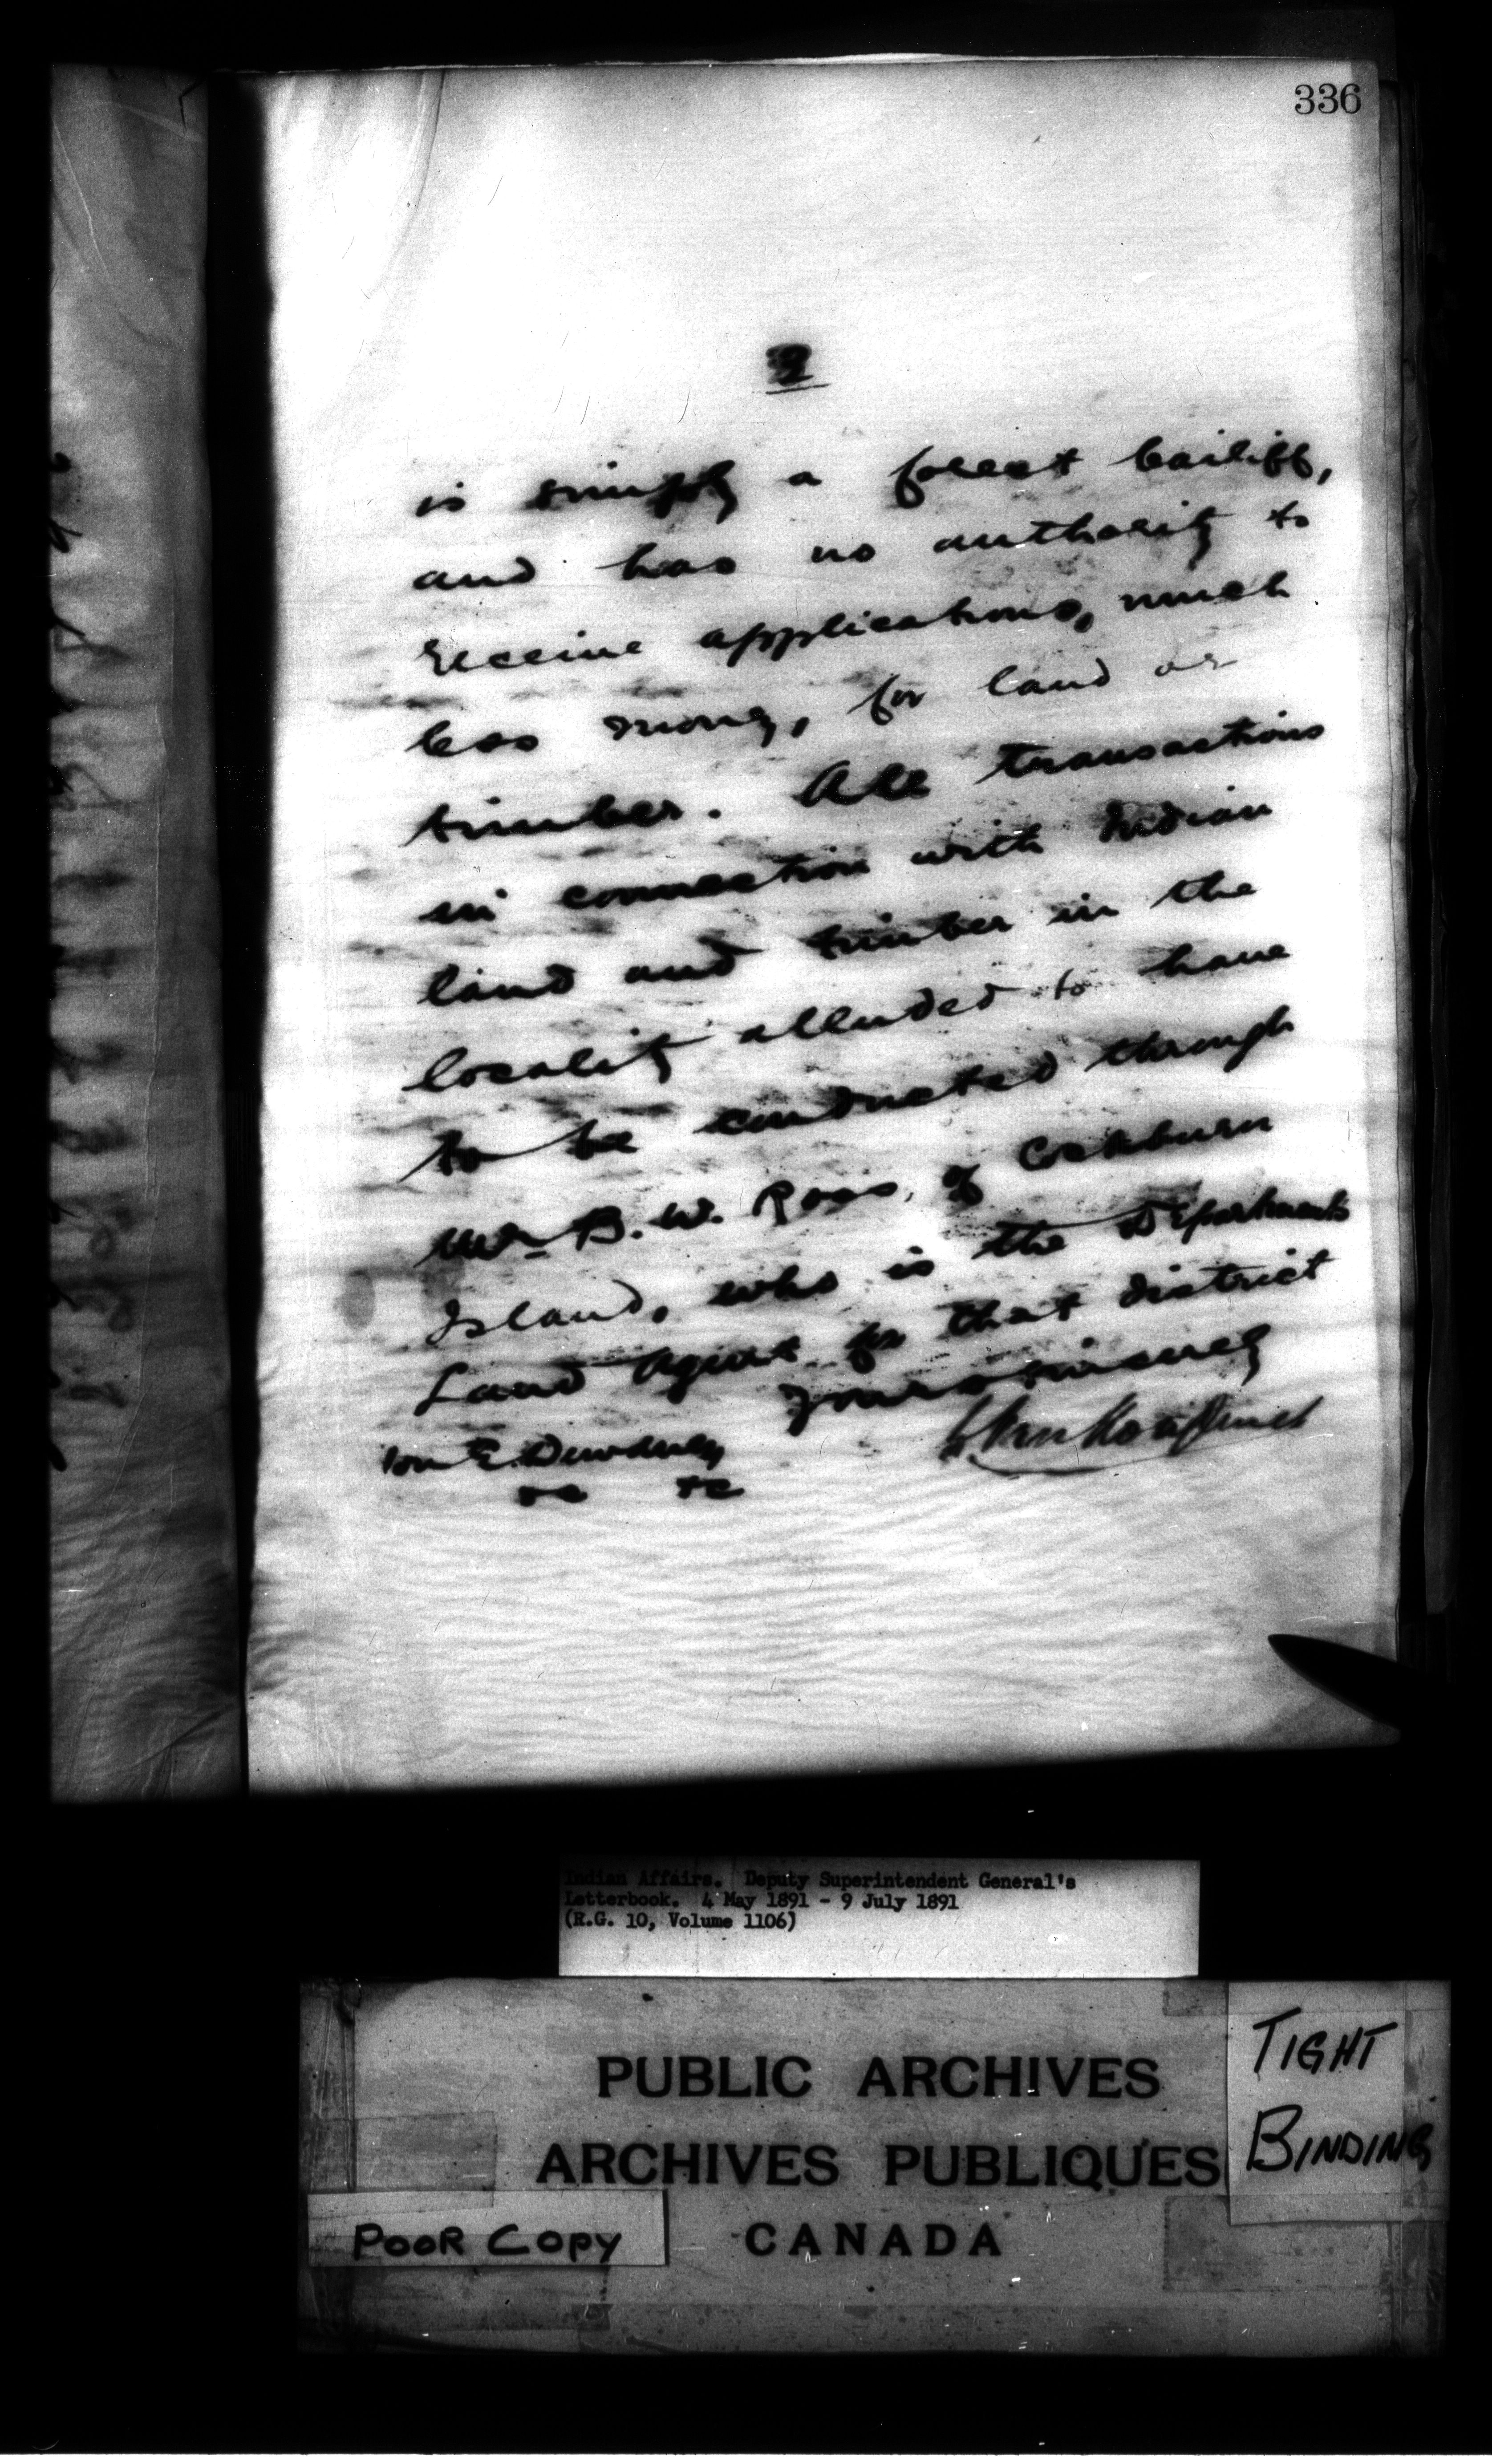 336
2
is simply a forest bailiff,
and has no authority to
receive applications, much
less money, for land or
timber. All transactions
in connection with Indian
land and timber in the
locality alluded to have
to be conducted through
Mr B. W. Ross, of Cockburn
Island, who is the Departments
Land Agent for that district
Yours sincerely
L Vankoughnet
Hon E. Dewdney
&c &c
Indian Affairs. Deputy Superintendent General's
Letterbook. 4 May 1891 - 9 July 1891
(R.G. 10, Volume 1106)
PUBLIC ARCHIVES
ARCHIVES PUBLIQUES
CANADA
TIGHT
BINDING
POOR COPY